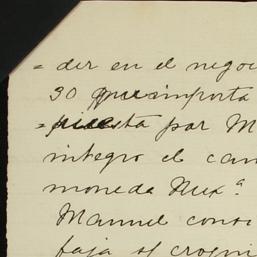 = der en el negoc
30 que importa
= puesta por M
integro el cam
moneda Mex.ª
Manuel cono
faja el croqui